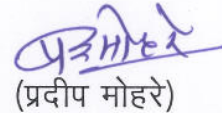 (प्रदीप मोहरे)